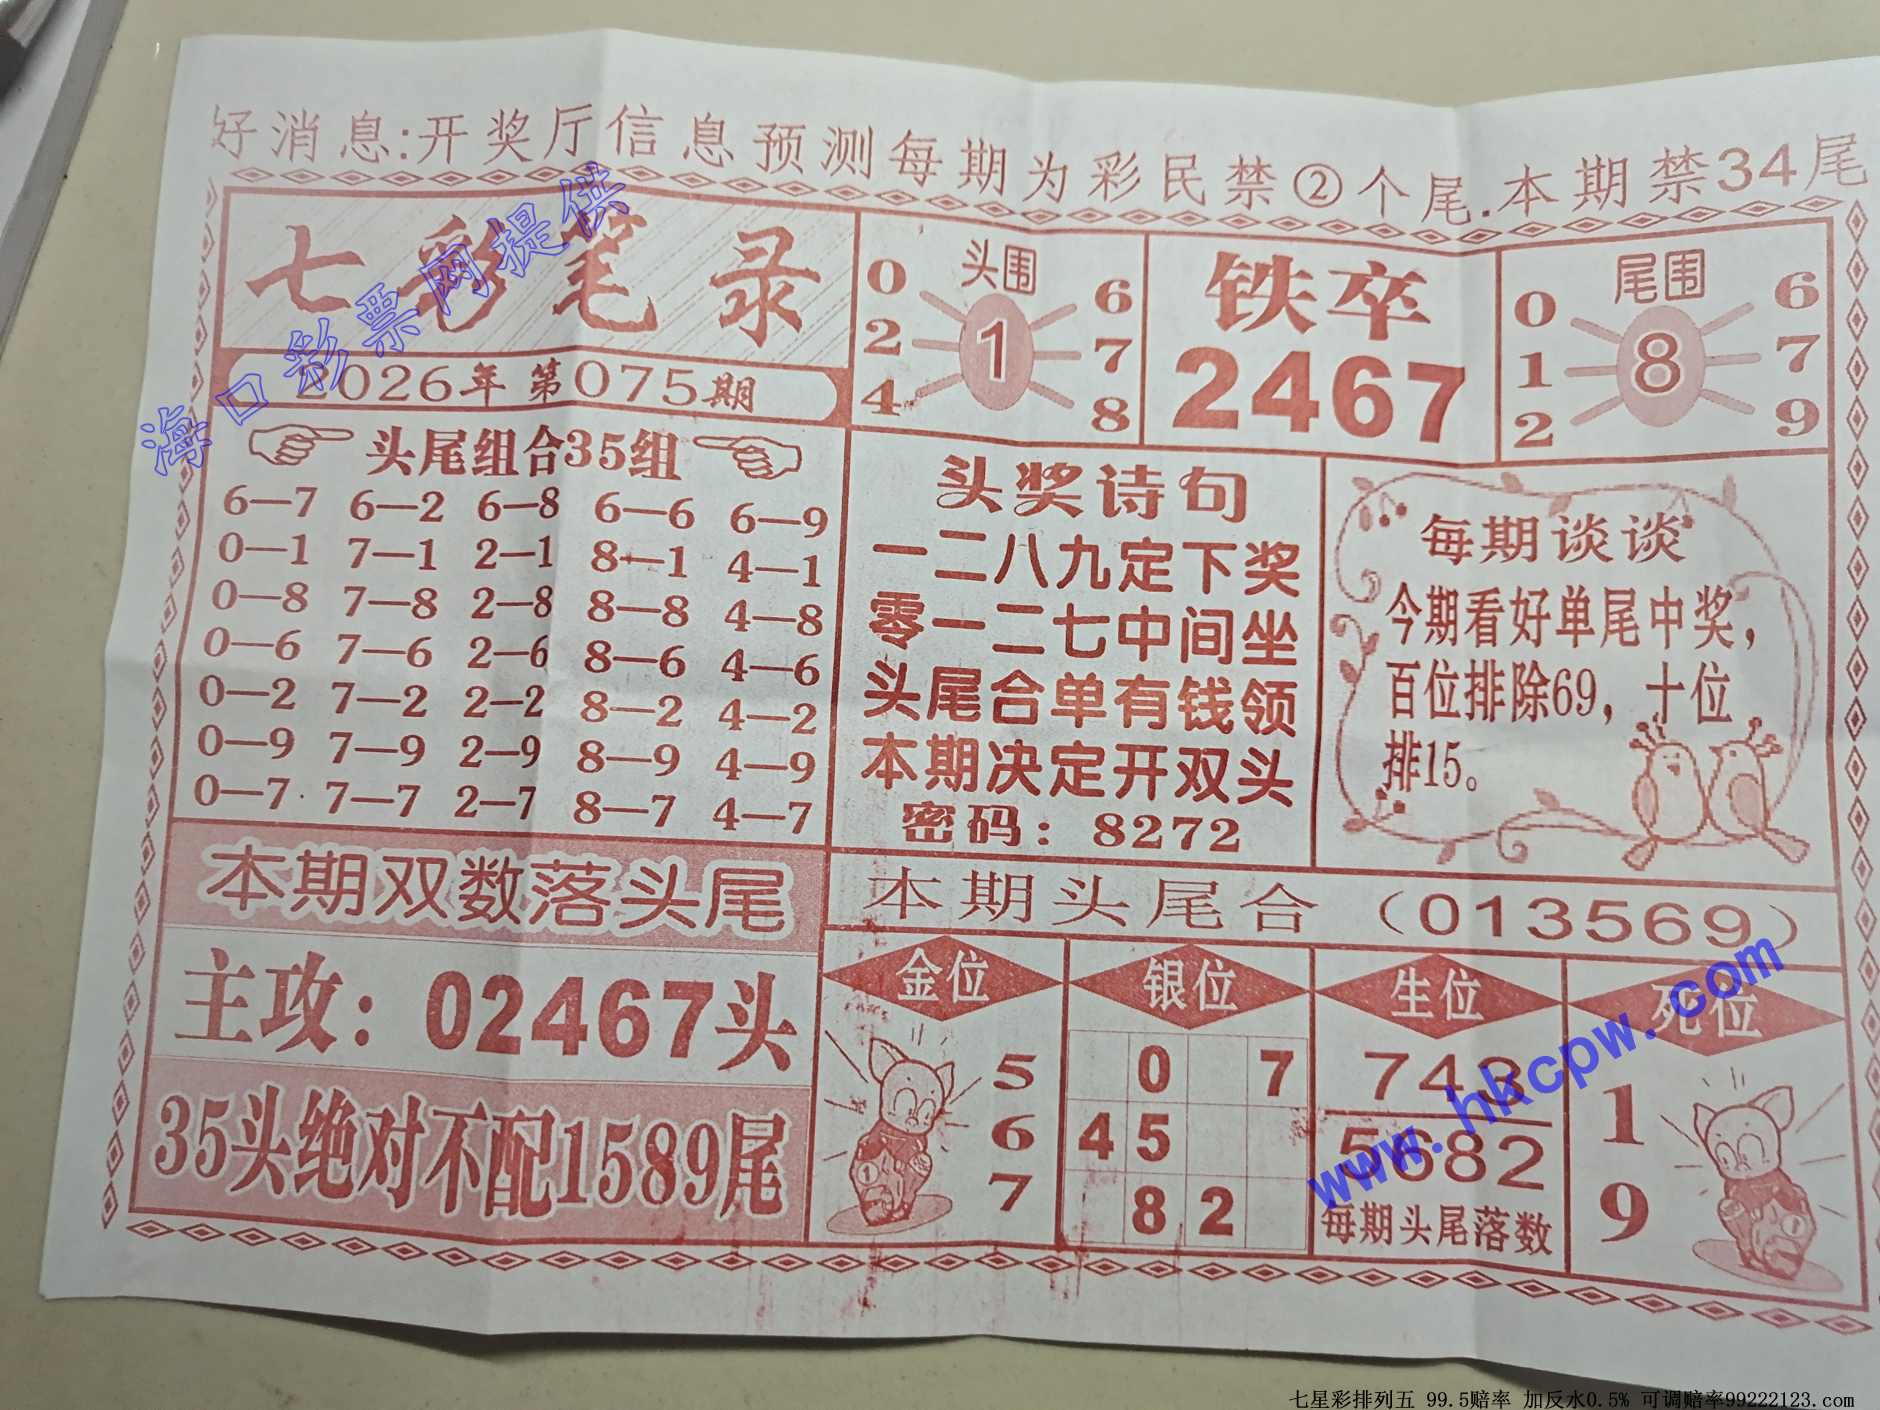 好消息:开奖厅信息预测每期为彩民禁②个尾.本期禁34尾
七彩笔录
2026年 第075期
头尾组合35组
6—7 6—2 6—8 6—6 6—9
0—1 7—1 2—1 8—1 4—1
0—8 7—8 2—8 8—8 4—8
0—6 7—6 2—6 8—6 4—6
0—2 7—2 2—2 8—2 4—2
0—9 7—9 2—9 8—9 4—9
0—7 7—7 2—7 8—7 4—7
本期双数落头尾
主攻：02467头
35头绝对不配1589尾
头围
0 6
2 1 7
4 8
铁卒
2467
尾围
0 6
1 8 7
2 9
头奖诗句
一二八九定下奖
零一二七中间坐
头尾合单有钱领
本期决定开双头
密码：8272
每期谈谈
今期看好单尾中奖，
百位排除69，十位
排15。
本期头尾合（013569）
金位
5
6
7
银位
0 7
4 5
8 2
生位
743
5682
每期头尾落数
死位
1
9
海口彩票网提供
www.hkcpw.com
七星彩排列五 99.5赔率 加反水0.5% 可调赔率99222123.com